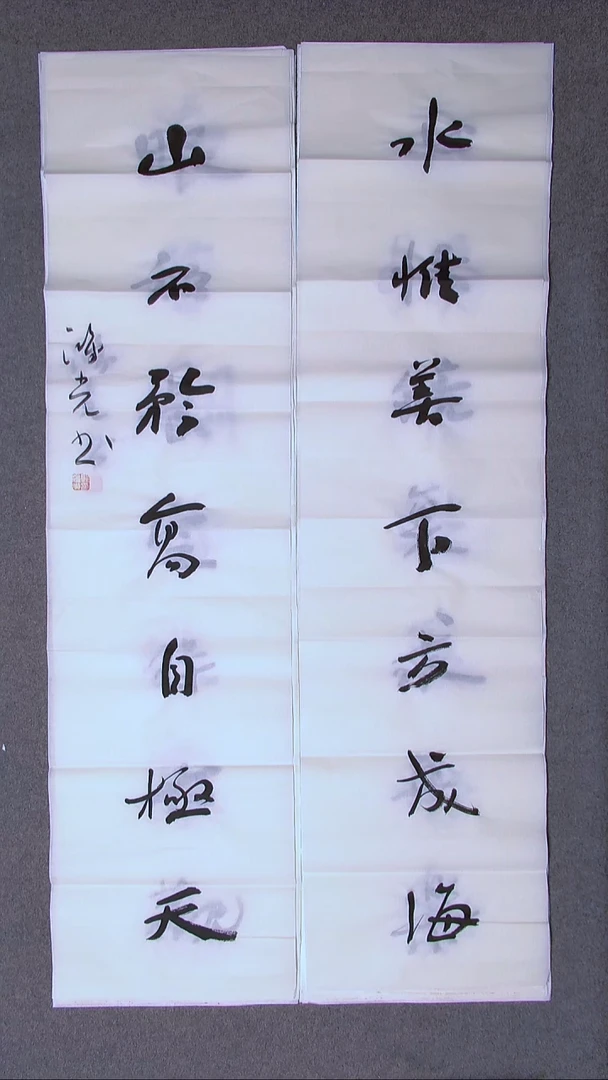 水惟善下方成海
山不矜高自極天
光书